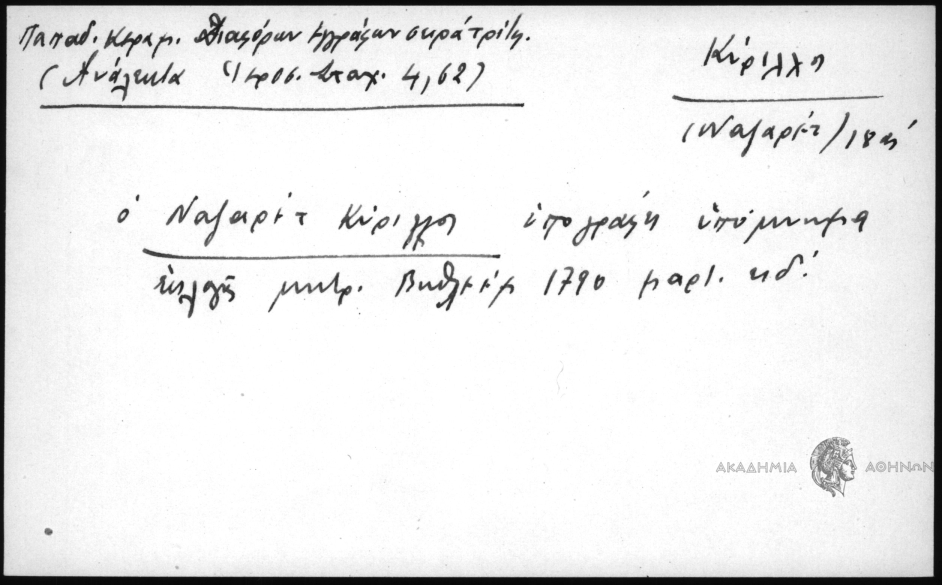 Παπαδ. Κεραμ. Διαφόρων εγγράφων
(Ανάλεκτα Ιεροσ. Σταχ. 4,62)
Κύριλλος
(Ναζαρέτ) 18ος
ὁ Ναζαρέτ Κύριλλος ὑπογράφει ὑπόμνημα
ἐκλογῆς μητρ. Βηθλεέμ 1790 μαρτ. κδ'.
ΑΚΑΔΗΜΙΑ ΑΘΗΝΩΝ